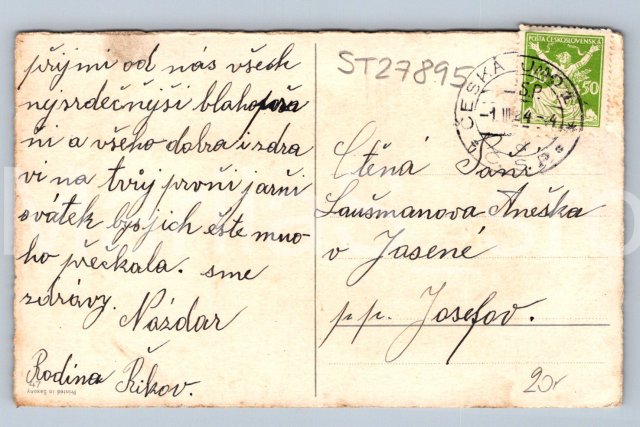 přijmi od nás všech
nejsrdečnější blahopřá
ni a všeho dobra i zdra
vi na tvůj první jarní
svátek bys jich ešte mno
ho přečkala. sme
zdrávy.
Názdar
Rodina Řikov.
Printed in Saxony
ST27895
POŠTA ČESKOSLOVENSKÁ
50
ČESKÁ
ČSP
-1.III.24-4
Ctěná Paní
Laušmanova Aneška
v Jasené
p.p. Josefov.
20,-